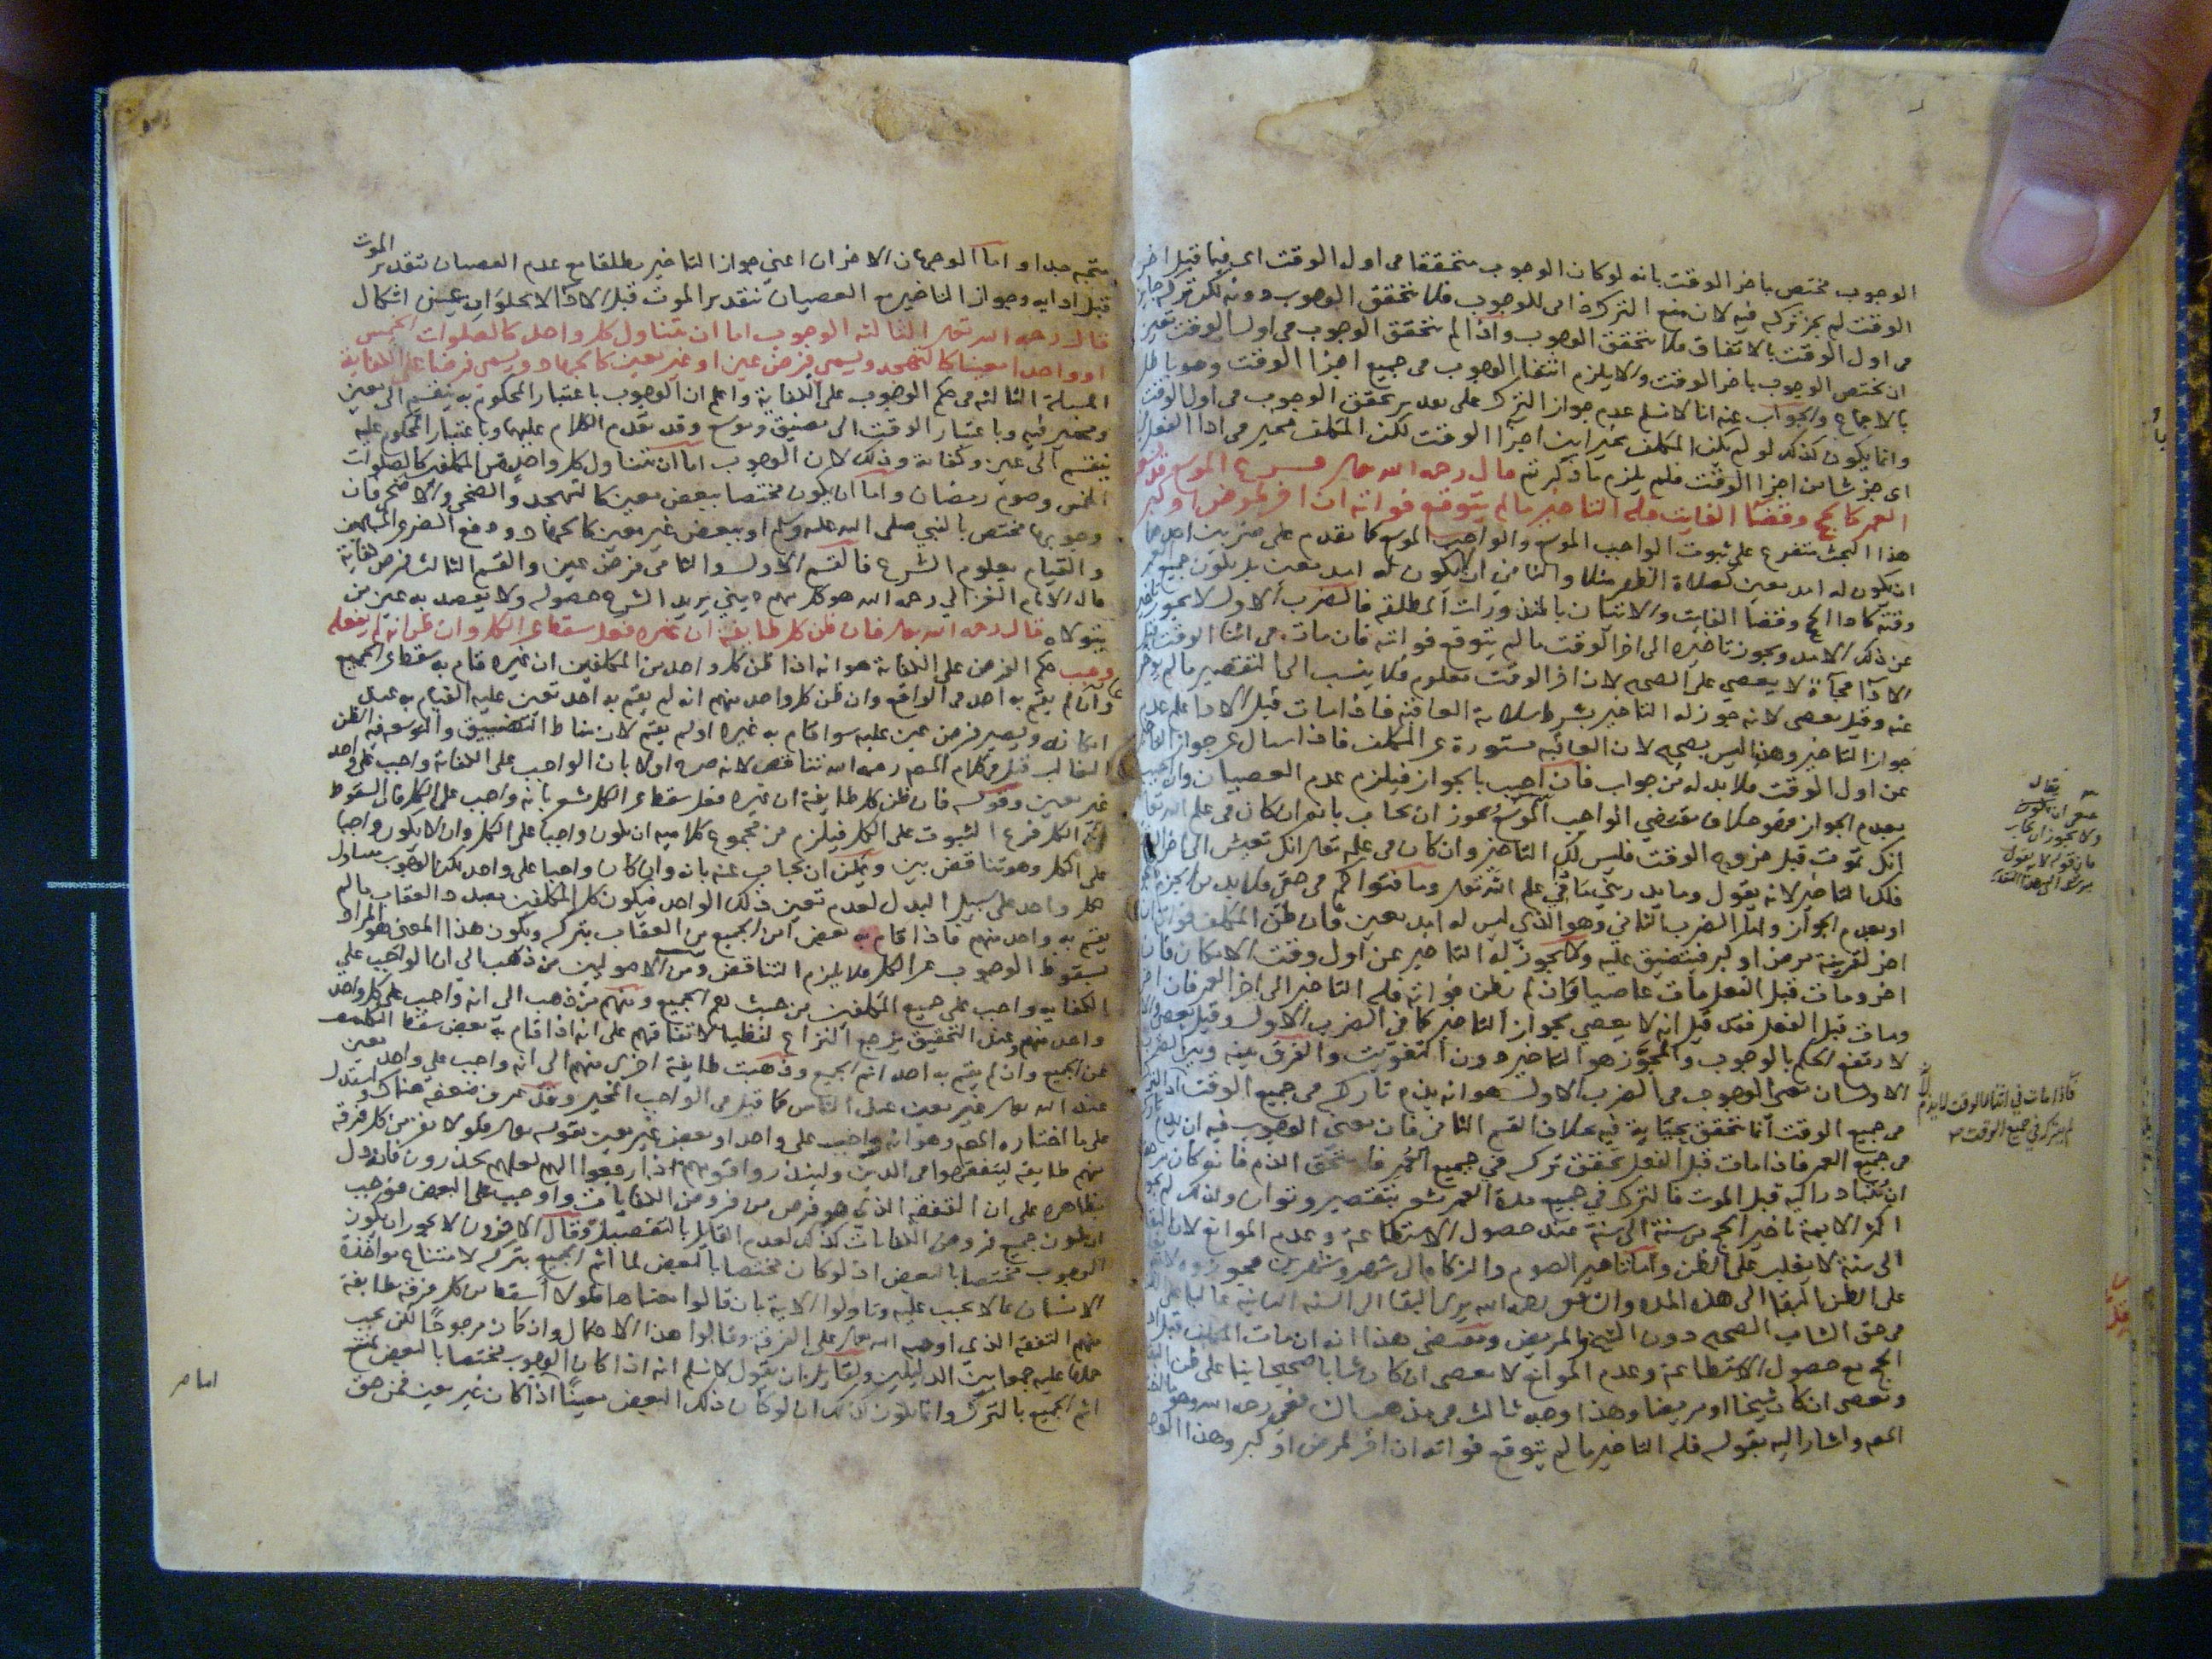 الوجوب مختص باخر الوقت بانه لو كان الوجوب متحققا في اول الوقت اى فيما قبل اخر
الوقت لم يجز تركه فيه لان منع الترك لازم للوجوب فلا يتحقق الوجوب دونه لكن تركه جايز
في اول الوقت بالاتفاق فلا يتحقق الوجوب واذا لم يتحقق الوجوب في اول الوقت تعين
ان يختص الوجوب باخر الوقت والا يلزم انتفا الوجوب في جميع اجزا الوقت وهو باطل
بالاجماع والجواب عنه انا لا نسلم عدم جواز الترك على تقدير تحقق الوجوب في اول الوقت
وانما يكون كذلك لو لم يكن المكلف مخيرا بين اجزا الوقت لكن المكلف مخير في ادا الفعل في
اى جز شا من اجزا الوقت فلم يلزم ما ذكرتم قال رحمه الله تعالى فرع الموسع قد يسعه
العمر كالحج وقضا الفايت فله التاخير ما لم يتوقع فواته ان اخر لمرض او كبر
هذا البحث متفرع على ثبوت الواجب الموسع والواجب الموسع كما تقدم على ضربين احدهما
ان يكون له امد معين كصلاة الظهر مثلا والثاني ان لا يكون له امد معين بل يكون جميع العمر
وقته كادا الحج وقضا الفايت والاتيان بالمنذورات المطلقة فالضرب الاول لا يجوز تاخيره
عن ذلك الامد ويجوز تاخيره الى اخر الوقت ما لم يتوقع فواته فان مات في اثنا الوقت قبل
الادا فجأة لا يعصي على الصحيح لان اخر الوقت معلوم فلا ينسب الى التقصير ما لم يوخر
عنه وقيل يعصى لانه جوز له التاخير بشرط سلامة العاقبة فاذا مات قبل الادا علم عدم
جواز التاخير وهذا ليس بصحيح لان العاقبة مستورة عن المكلف فاذا سال عن جواز التاخير
عن اول الوقت فلا بد له من جواب فان اجيب بالجواز فيلزم عدم العصيان وان اجيب
بعدم الجواز فهو خلاف مقتضي الواجب الموسع ويجوز ان يجاب بانه ان كان في علم الله تعالى
انك تموت قبل خروج الوقت فليس لك التاخير وان كان في علمه تعالى انك تعيش الى اخر الوقت
فلك التاخير لانه يقول وما يدريني ما في علم الله تعالى وما فتواكم في حقي فلا بد من الجزم بالجواز
او بعدم الجواز واما الضرب الثاني وهو الذي ليس له امد معين فان ظن المكلف فواته ان
اخر لقرينة مرض او كبر فيتضيق عليه ولا يجوز له التاخير عن اول وقت الامكان فان
اخر ومات قبل الفعل مات عاصيا وان لم يظن فواته فله التاخير الى اخر العمر فان اخر
ومات قبل الفعل فقد قيل انه لا يعصي بجواز التاخير كما في الضرب الاول وقيل يعصي والا
لارتفع الحكم بالوجوب والمجوز هو التاخير دون التفويت والفرق بينه وبين الضرب
الاول ان معنى الوجوب في الضرب الاول هو انه يذم تاركه في جميع الوقت اذ الترك
في جميع الوقت انما يتحقق بجناية فيه بخلاف القسم الثاني فان معنى الوجوب فيه ان يذم تاركه
في جميع العمر فاذا مات قبل الفعل تحقق تركه في جميع العمر فاستحق الذم فانه كان يمكنه
ان يبادر اليه قبل الموت فالترك في جميع مدة العمر مشعر بتقصير وتوان ولذلك لم يجوز
اكثر الايمة تاخير الحج من سنة الى سنة عند حصول الاستطاعة وعدم الموانع لان البقا
الى سنة لا يغلب على الظن واما تاخير الصوم والزكاة الى شهر وشهرين فجوزوه لانه
على الظن البقا الى هذه المدة والشافعي رحمه الله يرى البقا الى السنة الثانية غالبا على الظن
في حق الشاب الصحيح دون الشيخ والمريض ومقتضى هذا انه ان مات المكلف قبل ادا
الحج مع حصول الاستطاعة وعدم الموانع لا يعصى ان كان شابا صحيحا بنا على ظن البقا
ويعصى ان كان شيخا او مريضا وهذا وجه ثالث في مذهب الشافعي رحمه الله وهو ما اختاره
المص واشار اليه بقوله فله التاخير ما لم يتوقع فواته ان اخر لمرض او كبر وهذا الوجه
يقال
ولا يجوز ان يجاب
فاذا مات في اثنا الوقت لا يذم لانه
لم يترك في جميع الوقت
متجه جدا واما الوجهان الاخران اعني جواز التاخير مطلقا مع عدم العصيان بتقدير الموت
قبل ادايه وجواز التاخير مع العصيان بتقدير الموت قبل الادا لا يخلوان عن اشكال
قال رحمه الله تعالى الثالثة الوجوب اما ان يتناول كل واحد كالصلوات الخمس
او واحدا معينا كالتهجد ويسمى فرض عين او غير معين كالجهاد ويسمى فرضا على الكفاية
المسلة الثالثة في حكم الوجوب على الكفاية واعلم ان الوجوب باعتبار المحكوم به ينقسم الى معين
ومخير فيه وباعتبار الوقت الى مضيق وموسع وقد تقدم الكلام عليهما وباعتبار المحكوم عليه
ينقسم الى عين وكفاية وذلك لان الوجوب اما ان يتناول كل واحد من المكلفين كالصلوات
الخمس وصوم رمضان واما ان يكون مختصا ببعض معين كالتهجد والضحى والاضحى فان
وجوبها مختص بالنبي صلى الله عليه وسلم او ببعض غير معين كالجهاد ودفع الضرر عن المسلمين
والقيام بعلوم الشرع فالقسم الاول والثاني فرض عين والقسم الثالث فرض كفاية
قال الامام الغزالي رحمه الله هو كل مهم ديني يريد الشرع حصوله ولا يقصد به عين من
يتولاه قال رحمه الله تعالى فان ظن كل طايفة ان غيره فعل سقط عن الكل وان ظن انه لم يفعله
وجب حكم الفرض على الكفاية هو انه اذا ظن كل واحد من المكلفين ان غيره قام به سقط عن الجميع
وان لم يقم به احد في الواقع وان ظن كل واحد منهم انه لم يقم به احد تعين عليه القيام به عند
امكانه ويصير فرض عين عليه سوا قام به غيره او لم يقم لان مناط التضييق والتوسعة فيه الظن
الغالب قيل في كلام المص رحمه الله تناقض لانه صرح اولا بان الواجب على الكفاية واجب على واحد
غير معين وقوله فان ظن كل طايفة ان غيره فعل سقط عن الكل مشعر بانه واجب على الكل فان السقوط
عن الكل فرع الثبوت على الكل فيلزم من مجموع كلاميه ان يكون واجبا على الكل وان لا يكون واجبا
على الكل وهو تناقض بين ويمكن ان يجاب عنه بانه وان كان واجبا على واحد لكن الوجوب يتناول
كل واحد على سبيل البدل لعدم تعين ذلك الواحد فيكون كل المكلفين بصدد العقاب ما لم
يقم به واحد منهم فاذا قام به بعض امن الجميع من العقاب بتركه ويكون هذا المعنى هو المراد
بسقوط الوجوب عن الكل فلا يلزم التناقض ومن الاصوليين من ذهب الى ان الواجب على
الكفاية واجب على جميع المكلفين من حيث هم الجميع ومنهم من ذهب الى انه واجب على كل واحد
واحد منهم وعند التحقيق يرجع النزاع لفظيا لاتفاقهم على انه اذا قام به بعض سقط التكليف
عن الجميع وان لم يقم به احد اثم الجميع وذهبت طايفة اخرى منهم الى انه واجب على واحد معين
عند الله تعالى غير معين عند الناس كما قيل في الواجب المخير وقد عرف ضعفه هناك واستدل
على ما اختاره المص وهو انه واجب على واحد او بعض غير معين بقوله تعالى فلولا نفر من كل فرقة
منهم طايفة ليتفقهوا في الدين ولينذروا قومهم اذا رجعوا اليهم لعلهم يحذرون فانه دل
بظاهره على ان التفقه الذي هو فرض من فروض الكفايات واوجب على البعض فوجب
ان يكون جميع فروض الكفايات كذلك لعدم القايل بالتفصيل وقال الاخرون لا يجوز ان يكون
الوجوب مختصا بالبعض اذ لو كان مختصا بالبعض لما اثم الجميع بتركه لامتناع مواخذة
الانسان بما لا يجب عليه وتاولوا الاية بان قالوا معناها فلولا اسقط من كل فرقة طايفة
منهم التفقه الذي اوجبه الله تعالى على الفرقة وقالوا هذا الاحتمال وان كان مرجوحا لكن يجب
حملها عليه جمعا بين الدليلين ولقايل ان يقول لا نسلم انه اذا كان الوجوب مختصا بالبعض يمتنع
اثم الجميع بالترك وانما يكون كذلك ان لو كان ذلك البعض معينا اذا كان غير معين فمن حق
اما من